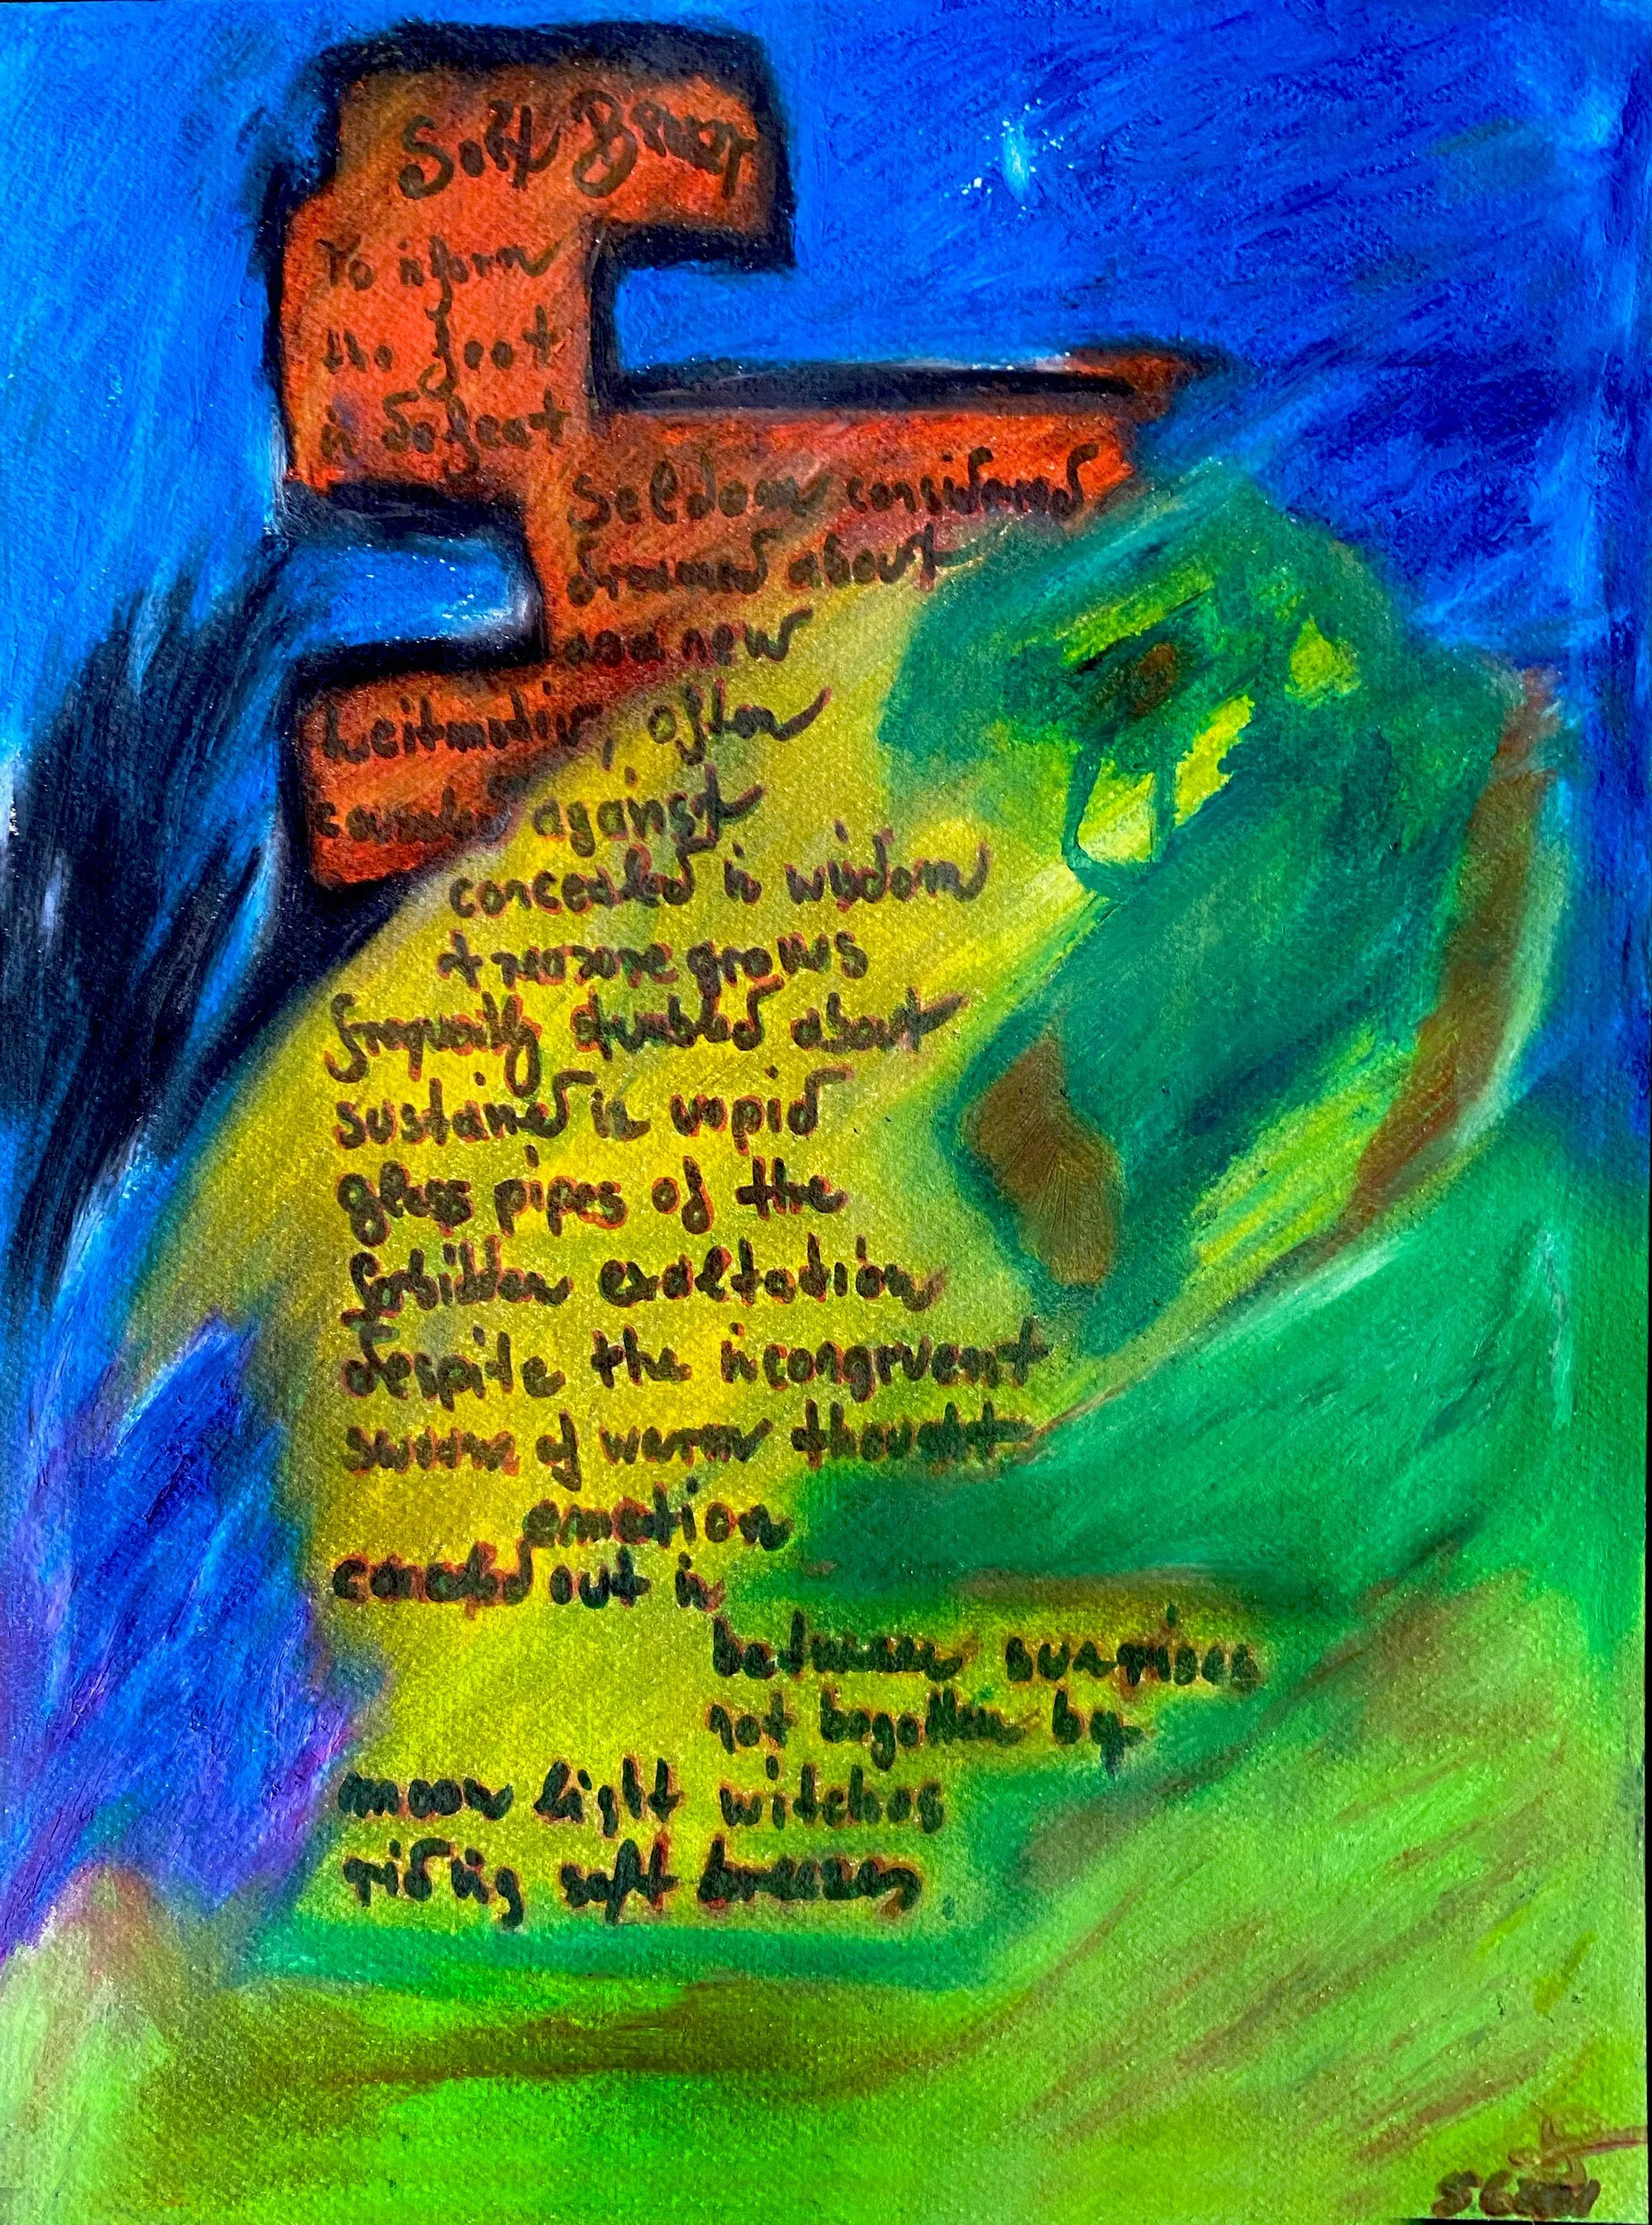 Soft Breez
To inform
the feat
in defeat
Seldom considered
dreamed about
new
Leitmotiv, often
against
concealed in wisdom
treasure grows
stumbled about
sustained in vapid
glass pipes of the
forbidden exaltation
despite the incongruent
of warm thought
emotion
out in
between surprises
not begotten by
moon light witches
riding soft breezes